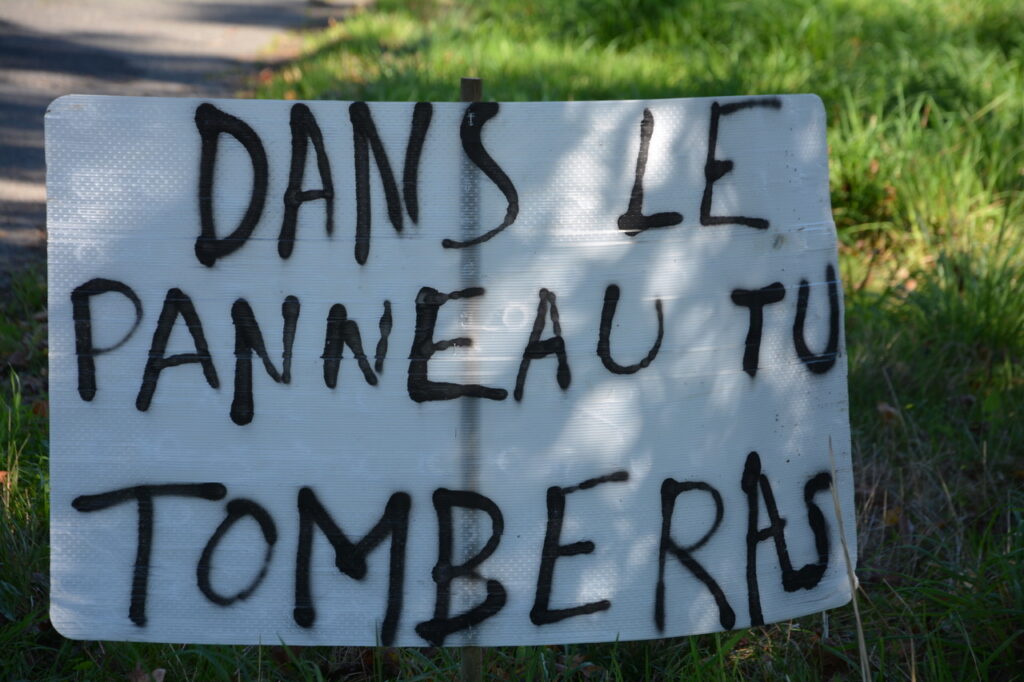 DANS LE
PANNEAU TU
TOMBERAS